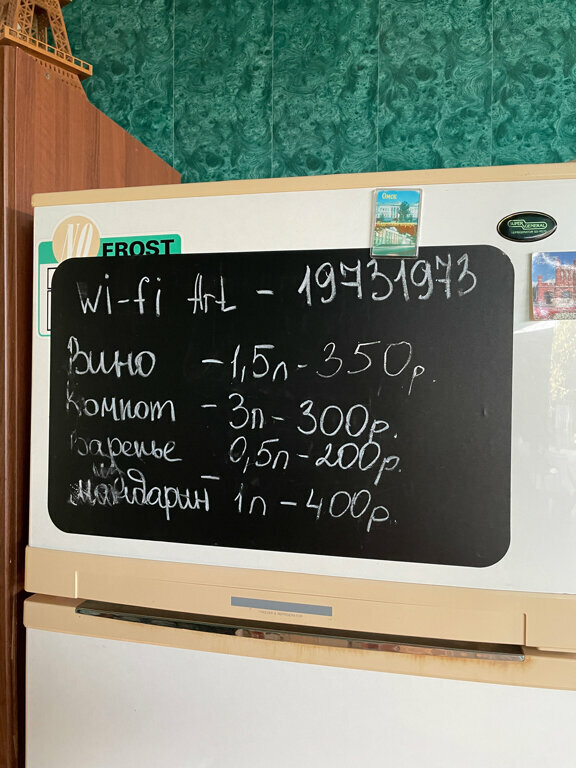 Омск
SUPER GENERAL
NO FROST
Wi-fi Art - 19731973
Вино - 1,5л - 350р.
Компот - 3л - 300р.
Варенье 0,5л - 200р.
мандарин - 1л - 400р.